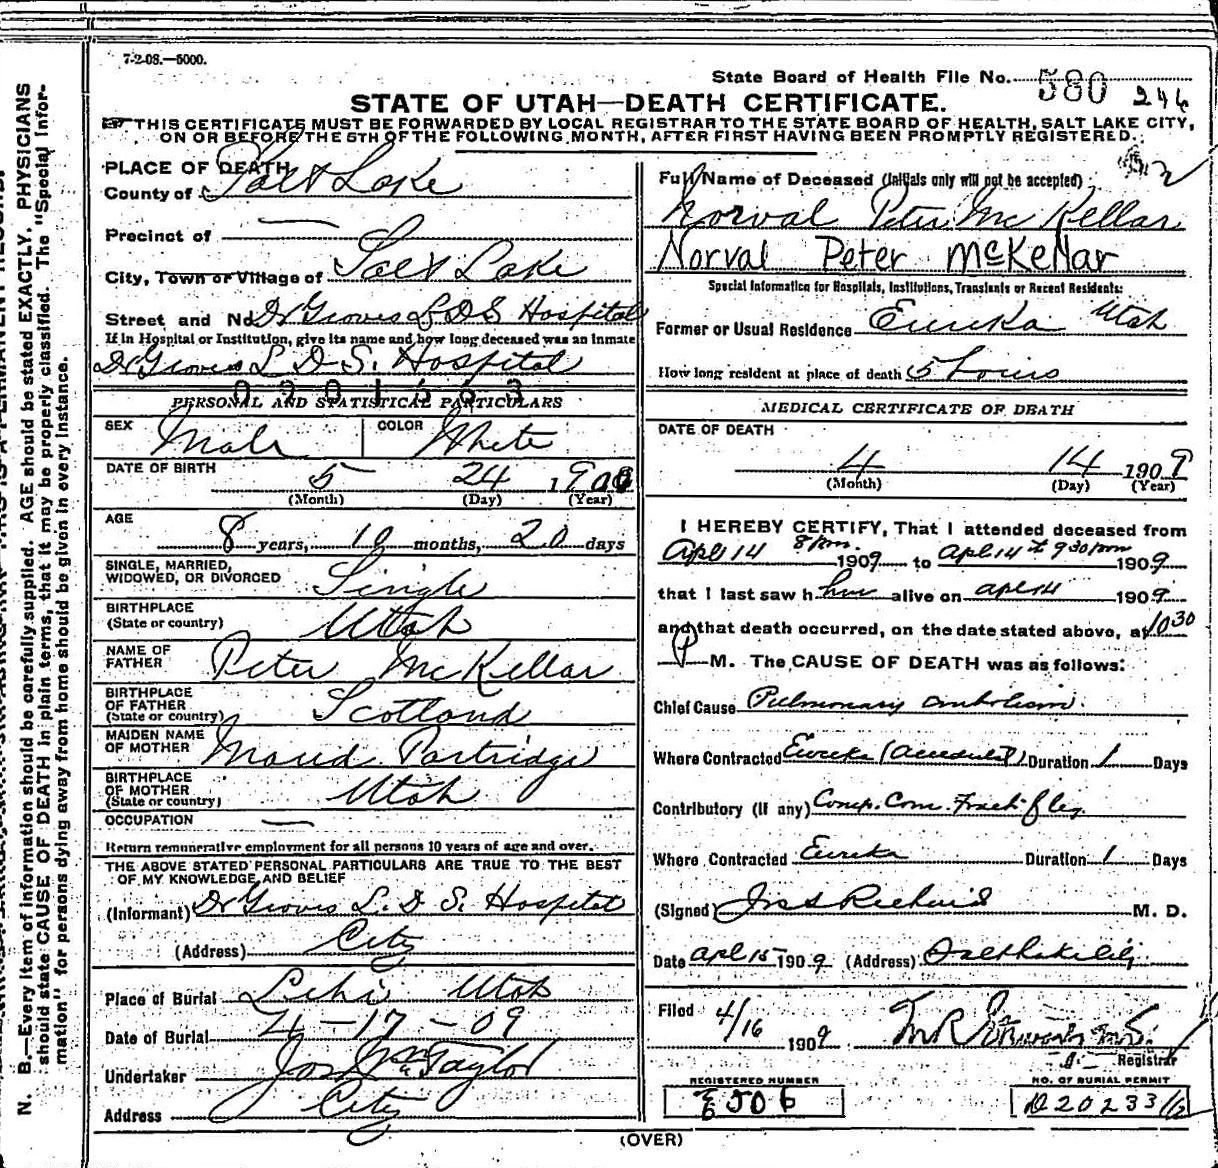 7-2-08.—5000.
State Board of Health File No. 580 246
STATE OF UTAH—DEATH CERTIFICATE.
THIS CERTIFICATE MUST BE FORWARDED BY LOCAL REGISTRAR TO THE STATE BOARD OF HEALTH, SALT LAKE CITY,
ON OR BEFORE THE 5TH OF THE FOLLOWING MONTH, AFTER FIRST HAVING BEEN PROMPTLY REGISTERED.
PLACE OF DEATH
County of Salt Lake
Precinct of —
City, Town or Village of Salt Lake
Street and No. Dr Groves L D S Hospital
If in Hospital or Institution, give its name and how long deceased was an inmate
Dr Groves L. D. S. Hospital
0201563
PERSONAL AND STATISTICAL PARTICULARS
SEX Male COLOR White
DATE OF BIRTH
5 24 1900
(Month) (Day) (Year)
AGE
8 years, 10 months, 20 days
SINGLE, MARRIED,
WIDOWED, OR DIVORCED Single
BIRTHPLACE
(State or country) Utah
NAME OF
FATHER Peter McKellar
BIRTHPLACE
OF FATHER
(State or country) Scotland
MAIDEN NAME
OF MOTHER Maud Partridge
BIRTHPLACE
OF MOTHER
(State or country) Utah
OCCUPATION —
Return remunerative employment for all persons 10 years of age and over.
THE ABOVE STATED PERSONAL PARTICULARS ARE TRUE TO THE BEST
OF MY KNOWLEDGE AND BELIEF
(Informant) Dr Groves L. D. S. Hospital
(Address) City
Place of Burial Lehi Utah
Date of Burial 4-17-09
Undertaker Jos Wm Taylor
Address City
Full Name of Deceased (Initials only will not be accepted)
Norval Peter McKellar
Norval Peter McKellar
Special Information for Hospitals, Institutions, Transients or Recent Residents:
Former or Usual Residence Eureka Utah
How long resident at place of death 5 hours
MEDICAL CERTIFICATE OF DEATH
DATE OF DEATH
4 14 1909
(Month) (Day) (Year)
I HEREBY CERTIFY, That I attended deceased from
Apl 14 8 pm. 1909 to Apl 14th 9 30 pm 1909
that I last saw him alive on apl 14 1909
and that death occurred, on the date stated above, at 10 30
P M. The CAUSE OF DEATH was as follows:
Chief Cause Pulmonary embolism.
Where Contracted Eureka (accidental) Duration 1 Days
Contributory (if any) Comp. Com. Fract. of leg
Where Contracted Eureka Duration 1 Days
(Signed) M. D.
Date apl 15 1909 (Address) Salt Lake City
Filed 4/16 1909
Registrar
REGISTERED NUMBER
NO. OF BURIAL PERMIT
D20233
(OVER)
N. B.—Every item of information should be carefully supplied. AGE should be stated EXACTLY. PHYSICIANS
should state CAUSE OF DEATH in plain terms, that it may be properly classified. The "Special Infor-
mation" for persons dying away from home should be given in every instance.